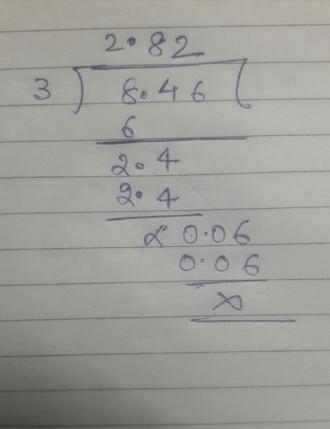 2.82
3 ) 8.46 (
6
2.4
2.4
x 0.06
0.06
x